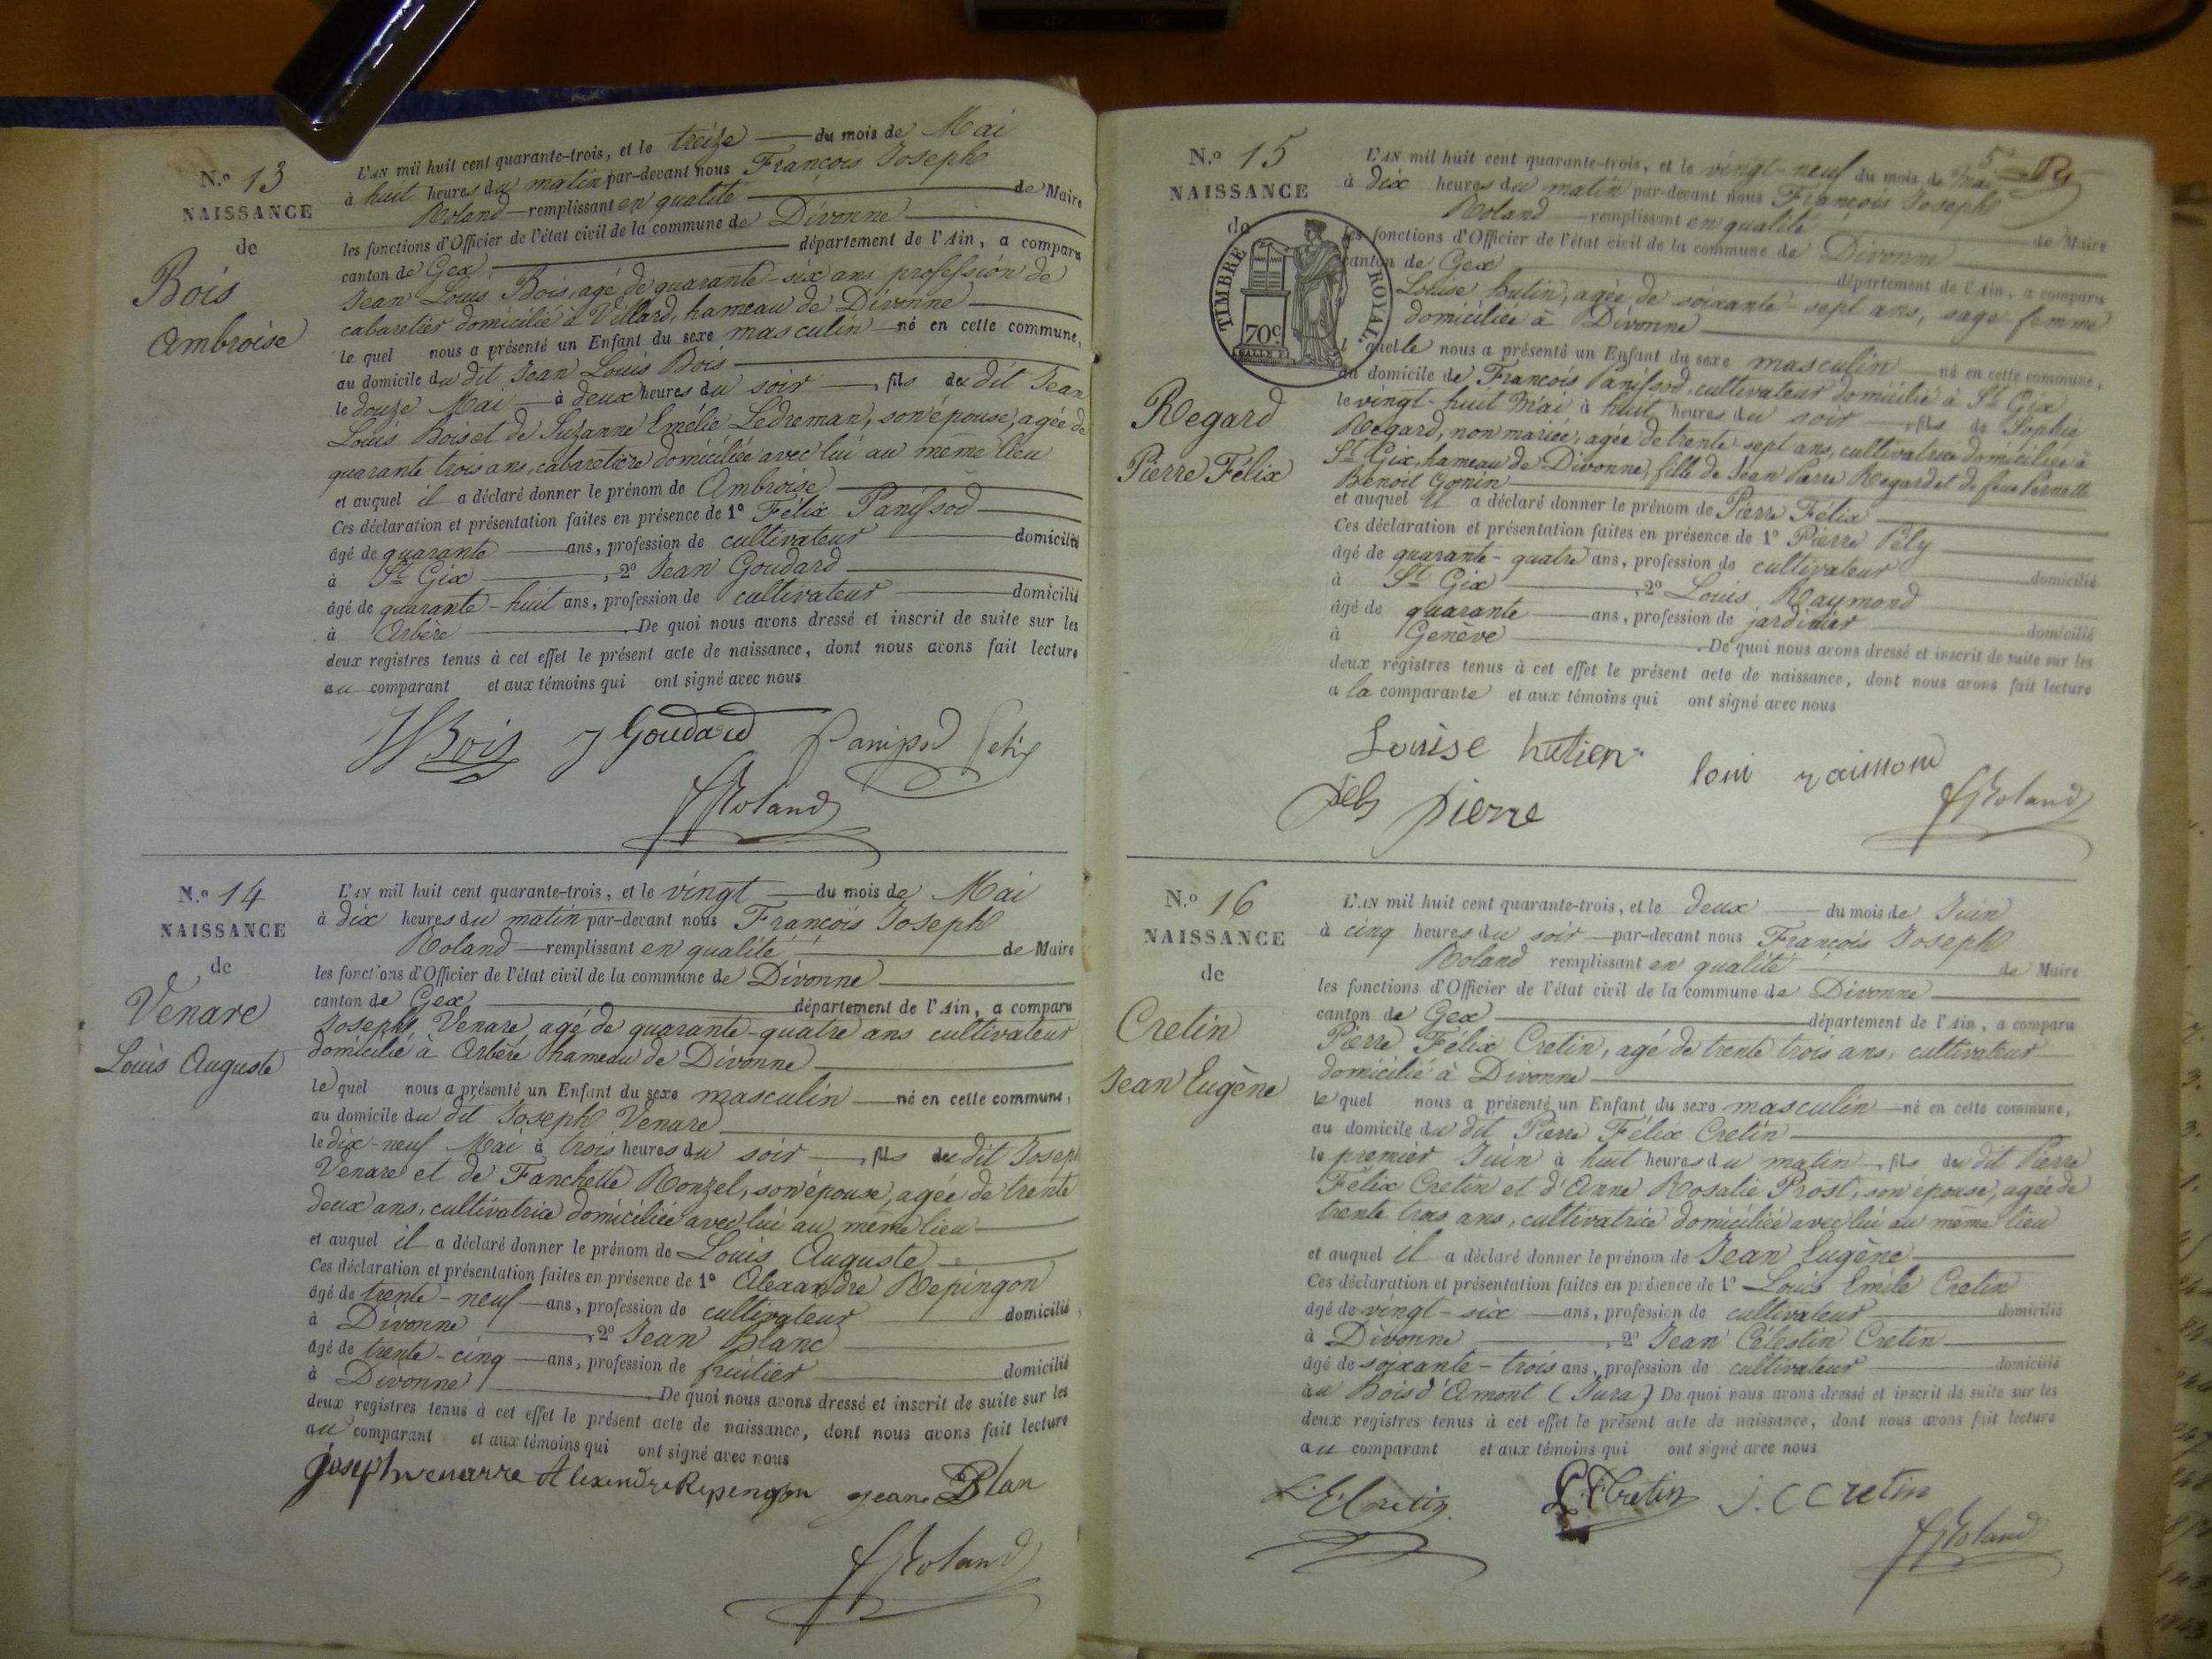 N.º 13
NAISSANCE
de
Bois
Ambroise
L'AN mil huit cent quarante-trois, et le treize du mois de Mai
à huit heures du matin par-devant nous François Joseph
Roland remplissant en qualité de Maire
les fonctions d'Officier de l'état civil de la commune de Divonne
canton de Gex département de l'Ain, a comparu
Jean Louis Bois, agé de quarante-six ans profession de
cabaretier domicilié à Villard, hameau de Divonne
le quel nous a présenté un Enfant du sexe masculin né en cette commune,
au domicile du dit Jean Louis Bois
le douze Mai à deux heures du soir, fils du dit Jean
Louis Bois et de Suzanne Emélie Ledreman, son épouse, agée de
quarante trois ans, cabaretière domiciliée avec lui au même lieu
et auquel il a déclaré donner le prénom de Ambroise
Ces déclaration et présentation faites en présence de 1º Félix Panissod
âgé de quarante ans, profession de cultivateur domicilié
à St Gix, 2º Jean Goudard
âgé de quarante-huit ans, profession de cultivateur domicilié
à Arbère De quoi nous avons dressé et inscrit de suite sur les
deux registres tenus à cet effet le présent acte de naissance, dont nous avons fait lecture
au comparant et aux témoins qui ont signé avec nous
Bois J Goudard Panissod Felix
Roland
N.º 14
NAISSANCE
de
Venare
Louis Auguste
L'AN mil huit cent quarante-trois, et le vingt du mois de Mai
à dix heures du matin par-devant nous François Joseph
Roland remplissant en qualité de Maire
les fonctions d'Officier de l'état civil de la commune de Divonne
canton de Gex département de l'Ain, a comparu
Joseph Venare, agé de quarante-quatre ans cultivateur
domicilié à Arbère hameau de Divonne
le quel nous a présenté un Enfant du sexe masculin né en cette commune,
au domicile du dit Joseph Venare
le dix-neuf Mai à trois heures du soir, fils du dit Joseph
Venare et de Fanchette Ronzel, son épouse, agée de trente
deux ans, cultivatrice domiciliée avec lui au même lieu
et auquel il a déclaré donner le prénom de Louis Auguste
Ces déclaration et présentation faites en présence de 1º Alexandre Repingon
âgé de trente-neuf ans, profession de cultivateur domicilié
à Divonne, 2º Jean Blanc
âgé de trente-cinq ans, profession de fruitier domicilié
à Divonne De quoi nous avons dressé et inscrit de suite sur les
deux registres tenus à cet effet le présent acte de naissance, dont nous avons fait lecture
au comparant et aux témoins qui ont signé avec nous
Joseph venarre Alexendre Repengon jean Blan
Roland
N.º 15
NAISSANCE
de
TIMBRE ROYAL
70c
Regard
Pierre Félix
L'AN mil huit cent quarante-trois, et le vingt-neuf du mois de Mai
à dix heures du matin par-devant nous François Joseph
Roland remplissant en qualité de Maire
les fonctions d'Officier de l'état civil de la commune de Divonne
canton de Gex département de l'Ain, a comparu
Louise hutin, agée de soixante-sept ans, sage-femme
domiciliée à Divonne
laquelle nous a présenté un Enfant du sexe masculin né en cette commune,
au domicile de François Panissod, cultivateur domicilié à St Gix
le vingt-huit Mai à huit heures du soir, fils de Sophie
Regard, non mariée, agée de trente sept ans, cultivatrice domiciliée à
St Gix, hameau de Divonne, fille de Jean Pierre Regard et de feue Pernette
Benoit Gonin
et auquel il a déclaré donner le prénom de Pierre Félix
Ces déclaration et présentation faites en présence de 1º Pierre Pély
âgé de quarante-quatre ans, profession de cultivateur domicilié
à St Gix, 2º Louis Raymond
âgé de quarante ans, profession de jardinier domicilié
à Genève De quoi nous avons dressé et inscrit de suite sur les
deux registres tenus à cet effet le présent acte de naissance, dont nous avons fait lecture
a la comparante et aux témoins qui ont signé avec nous
Louise hutien loui raimond
pely pierre Roland
N.º 16
NAISSANCE
de
Cretin
Jean Eugène
L'AN mil huit cent quarante-trois, et le deux du mois de Juin
à cinq heures du soir par-devant nous François Joseph
Roland remplissant en qualité de Maire
les fonctions d'Officier de l'état civil de la commune de Divonne
canton de Gex département de l'Ain, a comparu
Pierre Félix Cretin, agé de trente trois ans, cultivateur
domicilié à Divonne
le quel nous a présenté un Enfant du sexe masculin né en cette commune,
au domicile du dit Pierre Félix Cretin
le premier Juin à huit heures du matin, fils du dit Pierre
Félix Cretin et d'Anne Rosalie Prost, son épouse, agée de
trente trois ans, cultivatrice domiciliée avec lui au même lieu
et auquel il a déclaré donner le prénom de Jean Eugène
Ces déclaration et présentation faites en présence de 1º Louis Emile Cretin
âgé de vingt-six ans, profession de cultivateur domicilié
à Divonne, 2º Jean Célestin Cretin
âgé de soixante-trois ans, profession de cultivateur domicilié
au Bois d'Amont (Jura) De quoi nous avons dressé et inscrit de suite sur les
deux registres tenus à cet effet le présent acte de naissance, dont nous avons fait lecture
au comparant et aux témoins qui ont signé avec nous
L. E. Cretin P. F. Cretin J. C Cretin
Roland